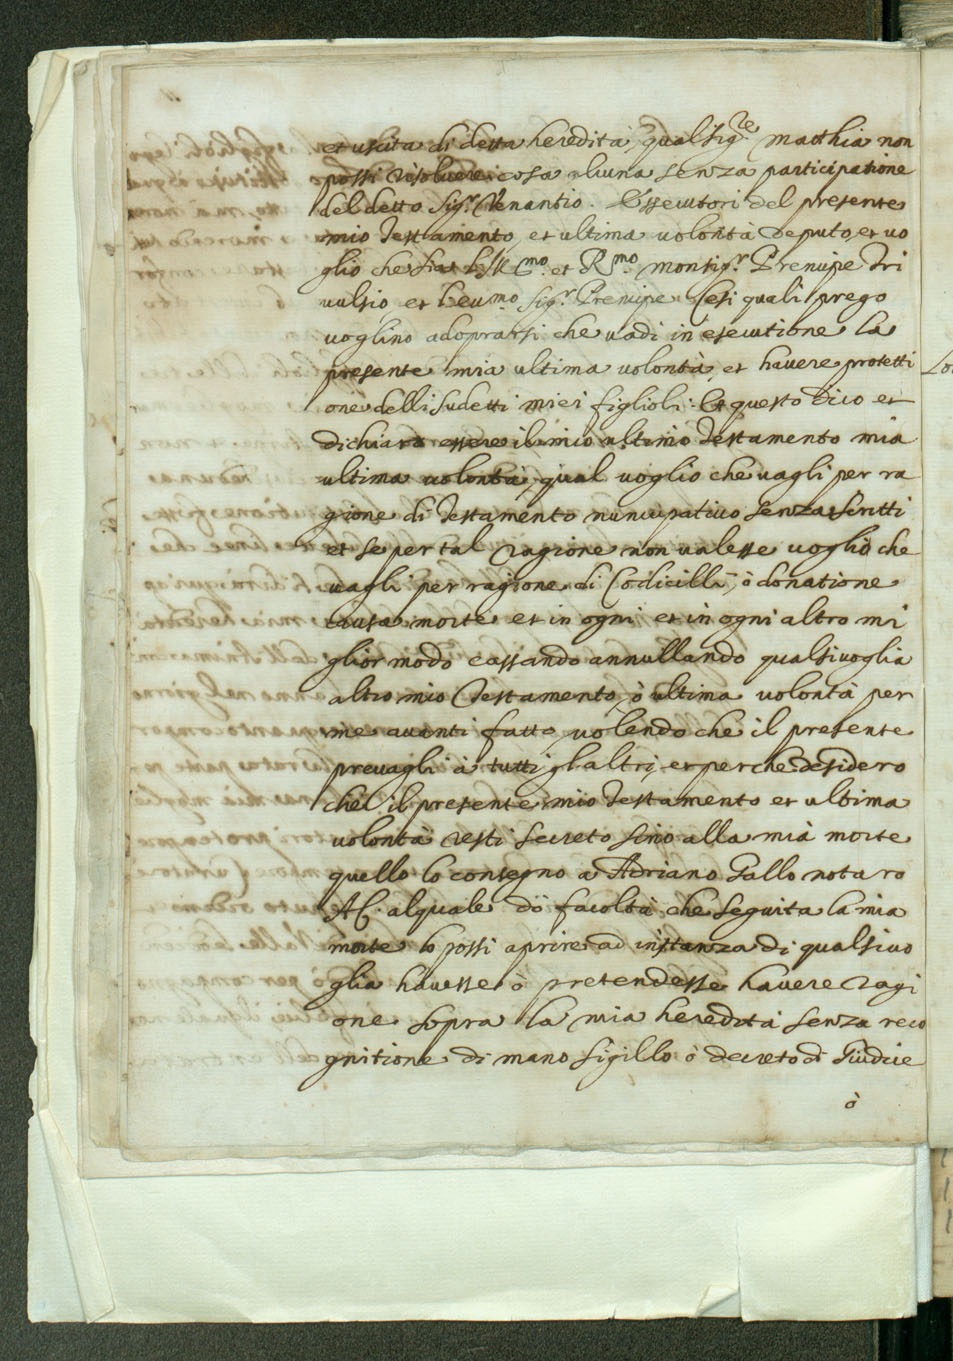 et uscita di detta heredità, qual sig.re Matthia non
possi risoluere cosa alcuna senza participatione
del detto Sig.r Venantio. Essecutori del presente
mio Testamento, et ultima uolontà deputo, et uo
glio che sia l'Ill.mo et R.mo Monsig.r Prencipe Tri
uulsio, et l'ecc.mo Sig.r Prencipe Cesi quali prego
uoglino adoprarsi che uadi in esecutione la
presente mia ultima uolontà, et hauere protetti
one delli sudetti miei figlioli: Et questo dico et
dichiaro essere il mio ultimo Testamento mia
ultima uolontà, qual uoglio che uagli per ra
gione di Testamento nuncupatiuo senza scritti
et se per tal ragione non ualesse uoglio che
uagli per ragione di Codicilli, ò donatione
causa morte et in ogni et in ogni altro mi
glior modo cassando annullando qualsiuoglia
altro mio Testamento, ò ultima uolontà per
me auanti fatto, uolendo che il presente
preuagli à tutti gl altri, et perche desidero
che il presente mio Testamento et ultima
uolontà resti secreto sino alla mia morte
quello lo consegno a Adriano Gallo notaro
AC. al quale dò facoltà che seguita la mia
morte lo possi aprire ad instanza di qualsiuo
glia hauesse ò pretendesse hauere ragi
one sopra la mia heredità senza reco
gnitione di mano sigillo ò decreto di Giudice
ò